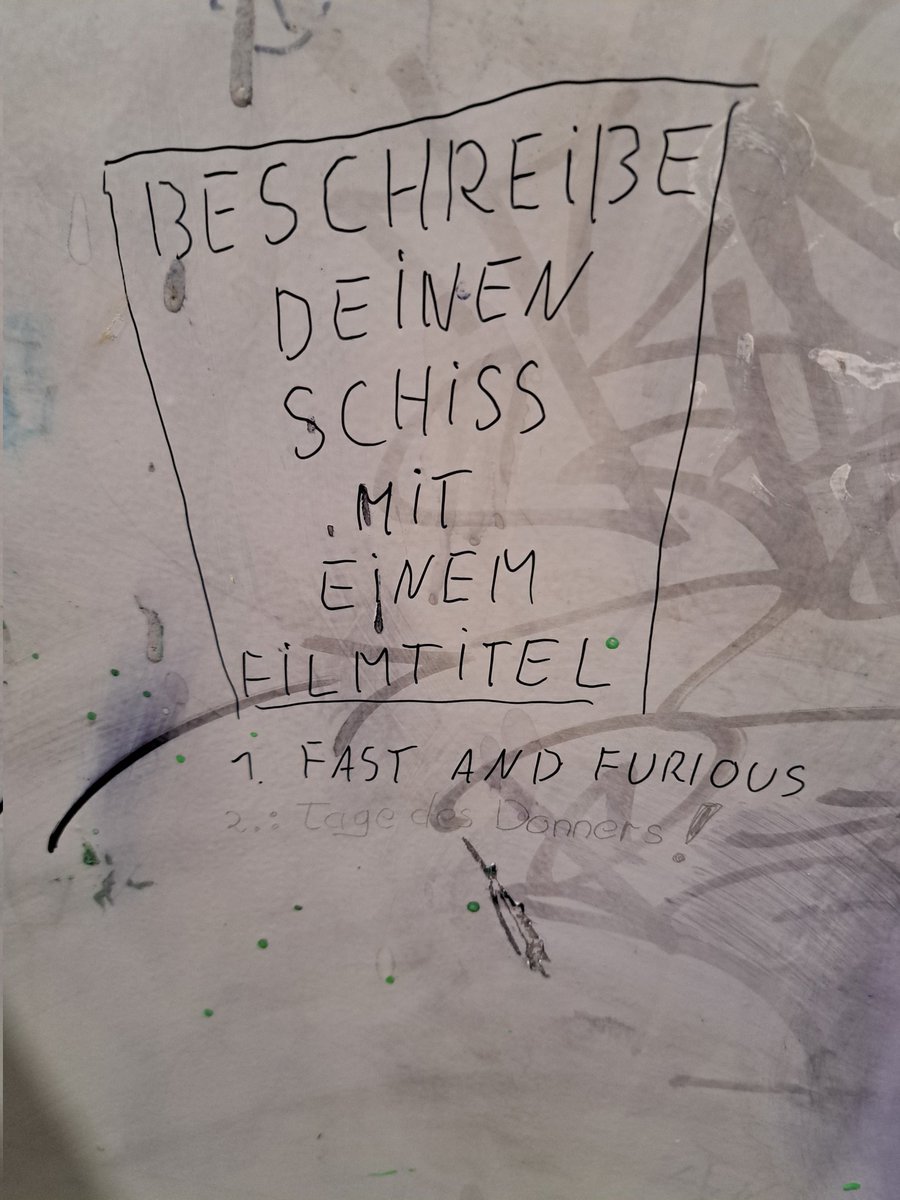 BESCHREIßE
DEINEN
SCHISS
MIT
EINEM
FILMTITEL
1. FAST AND FURIOUS
2.: Tage des Donners!